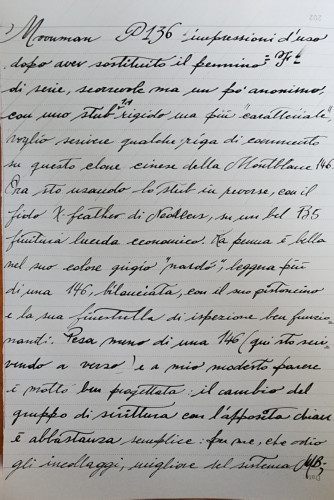 Moonman P136 impressioni d'uso
dopo aver sostituito il pennino "F"
di serie, scorrevole ma un po' anonimo,
con uno stub 1.1 rigido ma più "caratteriale",
voglio scrivere qualche riga di commento
su questo clone cinese della Montblanc 146.
Ora sto usando lo stub in reverse, con il
fido X-feather di Noodlers, su un bel B5
finitura lucida economico. La penna è bella
nel suo colore grigio "nardó", leggera più
di una 146, bilanciata, con il suo pistoncino
e la sua finestrella di ispezione ben funzio
nanti. Pesa meno di una 146 (qui sto scri-
vendo a verso) e a mio modesto parere
è molto ben progettata: il cambio del
gruppo di scrittura con l'apposita chiave
è abbastanza semplice: per me, che odio
gli incollaggi, migliore del sistema MB.